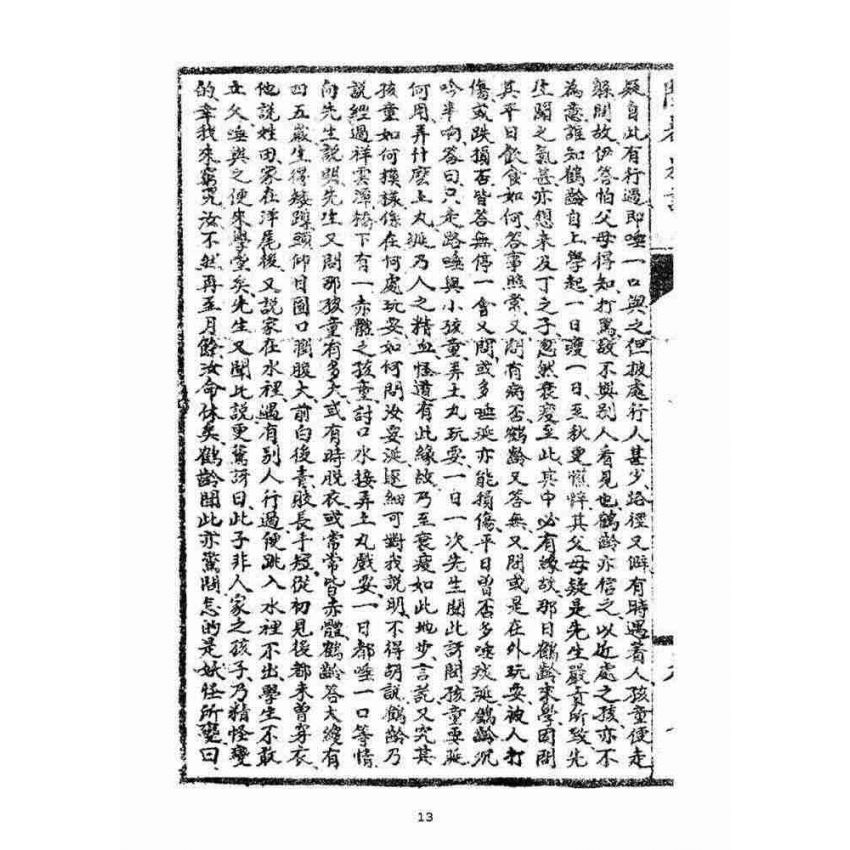 疑自此有行過即唾一口與之但披處行人甚少路徑又僻有時遇着人孩童便走
躲問故伊答怕父母得知打罵故不與別人看見也鶴齡亦信之以近處之孩亦不
為意誰知鶴齡自上學起一日瘦一日至秋更憔悴其父母疑是先生嚴責所致先
生聞之氣甚亦想來及丁之子忽然衰瘦至此其中必有緣故那日鶴齡來學因問
其平日飲食如何答事照常又問有病否鶴齡又答無又問或是在外玩耍被人打
傷或跌損否皆答無停一會又問或多唾涎亦能損傷平日曾否多唾殘涎鶴齡沉
吟半响答曰只走路唾與小孩童弄土丸玩耍一日一次先生聞此訝問孩童要涎
何用弄什麽土丸涎乃人之精血怪道有此緣故乃至衰瘦如此地步言說又究其
孩童如何摸樣係在何處玩耍如何問汝要涎逐細可對我說明不得胡說鶴齡乃
說經過祥雲潭橋下有一赤體之孩童討口水接弄土丸戲耍一日都唾一口等情
向先生說明先生又問那孩童有多大或有時脫衣或常常皆赤體鶴齡答大纔有
四五歲生得矮蹲頭仰目圓口濶腹大前白後青股長手短從初見後都未曾穿衣
他說姓田家在洋尾後又說家在水裡遇有別人行過便跳入水裡不出學生不敢
立久唾與之便來學堂矣先生又聞此說更驚訝曰此子非人家之孩子乃精怪變
的幸我來窮究汝不然再至月餘汝命休矣鶴齡聞此亦驚問怎的是妖怪所變曰
13